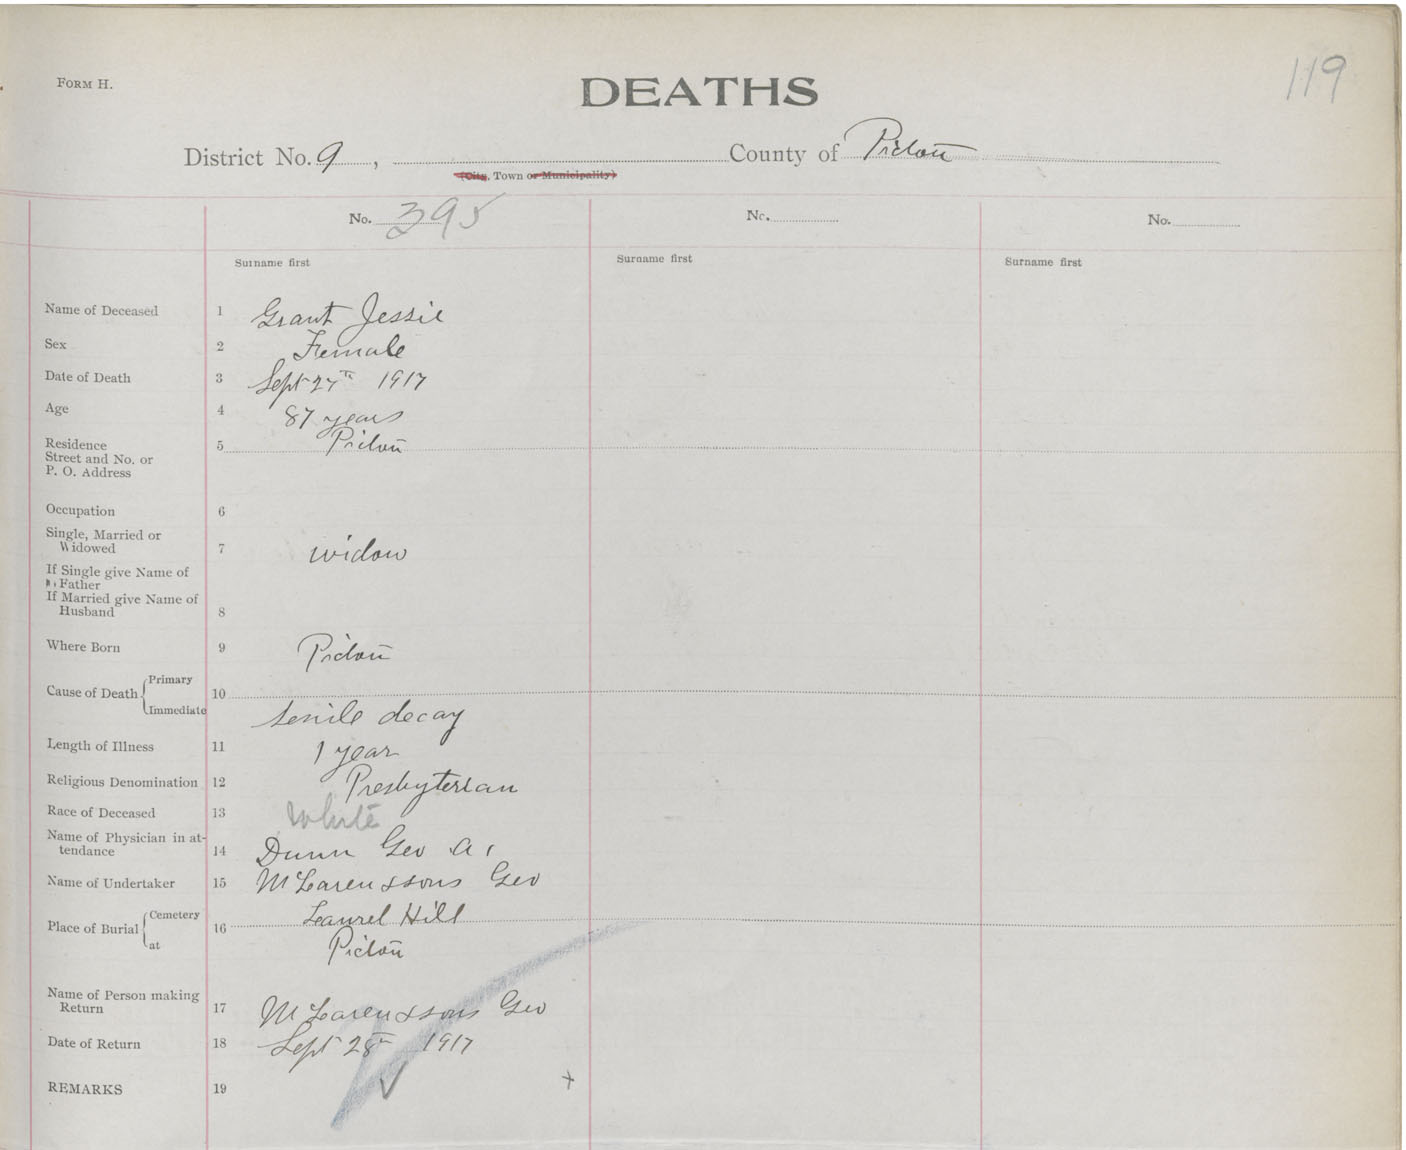 FORM H.
DEATHS
119
District No. 9, County of Pictou
(City, Town or Municipality)
No. 395 No. No.
Surname first Surname first Surname first
Name of Deceased 1 Grant Jessie
Sex 2 Female
Date of Death 3 Sept 27th 1917
Age 4 87 years
Residence 5 Pictou
Street and No. or
P. O. Address
Occupation 6
Single, Married or
Widowed 7 widow
If Single give Name of
Father
If Married give Name of
Husband 8
Where Born 9 Pictou
Cause of Death Primary 10
Immediate senile decay
Length of Illness 11 1 year
Religious Denomination 12 Presbyterian
Race of Deceased 13 White
Name of Physician in at-
tendance 14 Dunn Geo A.
Name of Undertaker 15 McLaren & sons Geo
Place of Burial Cemetery 16 Laurel Hill
at Pictou
Name of Person making
Return 17 McLaren & sons Geo
Date of Return 18 Sept 28th 1917
REMARKS 19